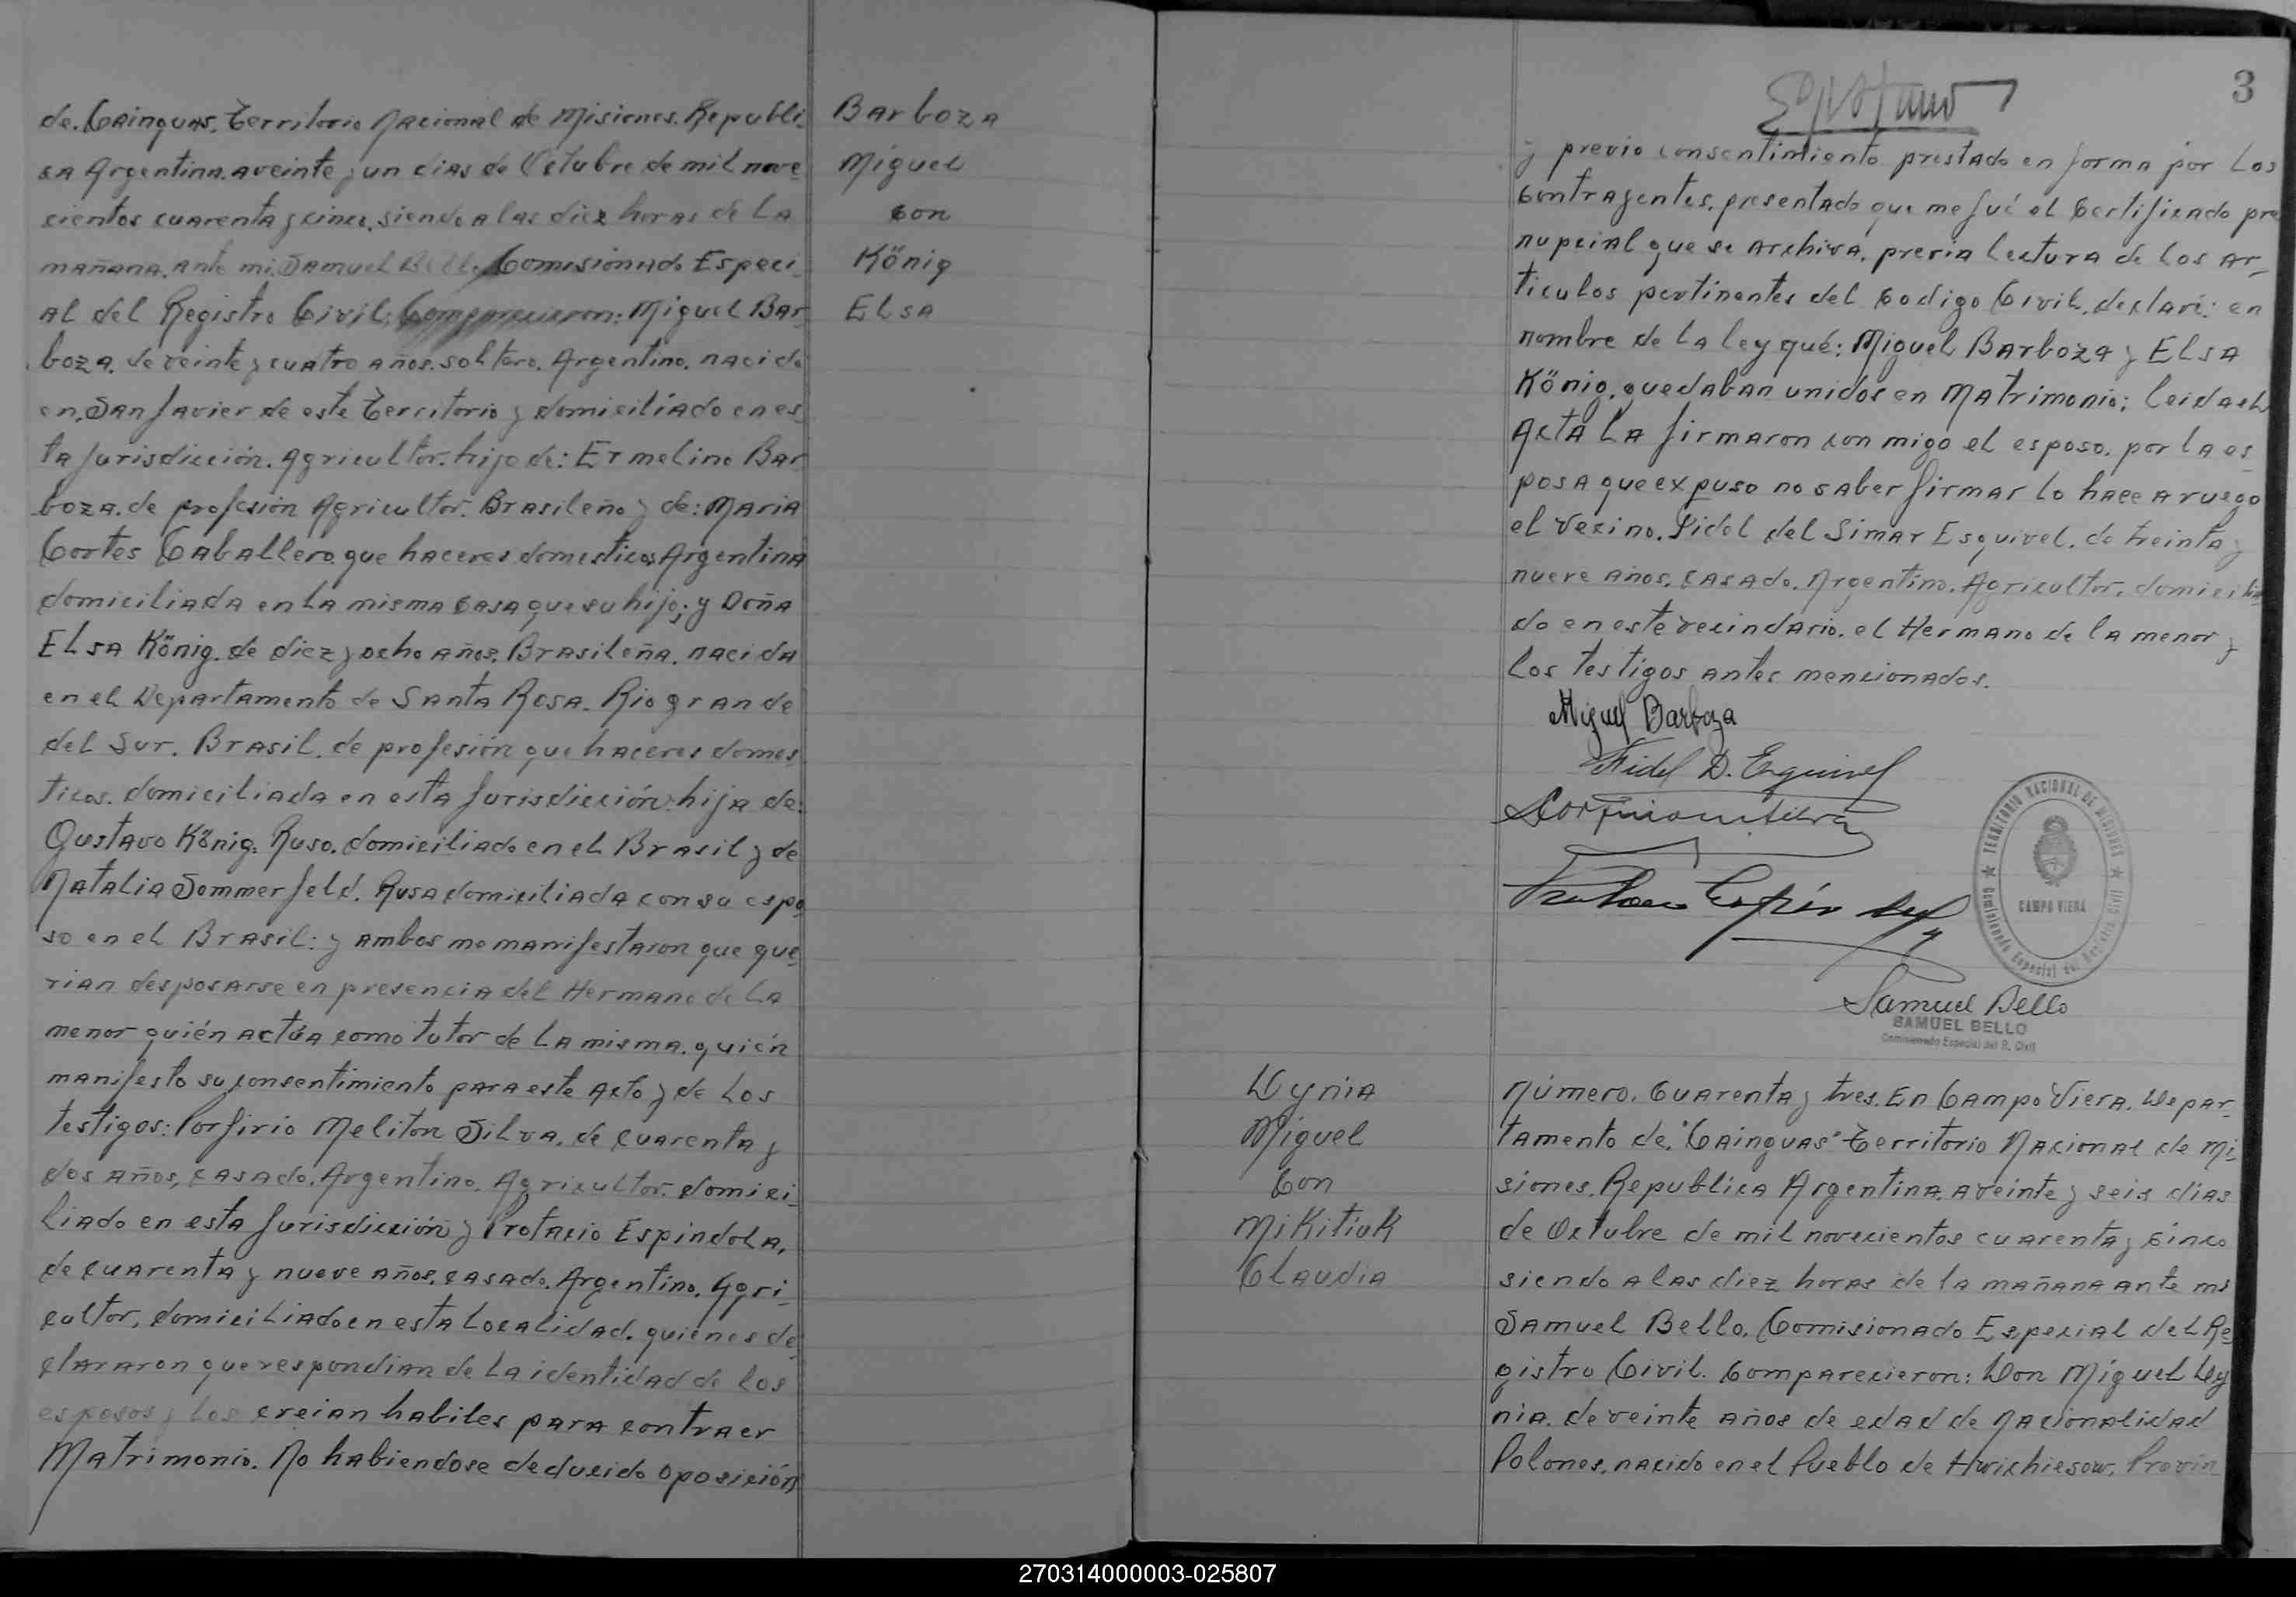 de. Cainguas. Territorio Nacional de Misiones. Republi-
ca Argentina. a veinte y un dias de Octubre de mil nove-
cientos cuarenta y cinco. siendo a las diez horas de la
mañana. ante mi. Samuel Bello, Comisionado Especi-
al del Registro Civil; Comparecieron: Miguel Bar-
boza. de veinte y cuatro años. soltero. Argentino. nacido
en. San Javier de este Territorio y domiciliado en es-
ta Jurisdicción. Agricultor. hijo de: Ermelino Bar-
boza. de profesión Agricultor. Brasileño y de: Maria
Cortes Caballero. que haceres domesticos, Argentina
domiciliada en la misma casa que su hijo; y Doña
Elsa König. de diez y ocho años, Brasileña. nacida
en el Departamento de Santa Rosa. Rio grande
del Sur. Brasil. de profesión que haceres domes-
ticos. domiciliada en esta Jurisdicción: hija de:
Gustavo König: Ruso. domiciliado en el Brasil y de
Natalia Sommerfeld. Rusa domiciliada con su espo-
so en el Brasil: y ambos me manifestaron que que-
rian desposarse en presencia del Hermano de la
menor quién actúa como tutor de la misma. quién
manifesto su consentimiento para este Acto y de los
testigos: Porfirio Meliton Silva, de cuarenta y
dos años, casado. Argentino. Agricultor. domici-
liado en esta Jurisdicción y Protacio Espindola,
de cuarenta y nueve años, casado. Argentino. Agri-
cultor, domiciliado en esta localidad. quienes de-
clararon que respondian de la identidad de los
esposos y los creian habiles para contraer
Matrimonio. No habiendose deducido oposición
Barboza
Miguel
con
König
Elsa
3
y previo consentimiento prestado en forma por los
contrayentes. presentado que me fué el Certificado pre
nupcial que se archiva. previa lectura de los ar-
ticulos pertinentes del Codigo Civil. declaré: en
nombre de la ley qué: Miguel Barboza y Elsa
König. quedaban unidos en Matrimonio: leida el
Acta la firmaron con migo el esposo. por la es-
posa que expuso no saber firmar lo hace a ruego
el vecino. Fidel del Simar Esquivel. de treinta y
nueve años. casado. Argentino. Agricultor. domicilia
do en este vecindario. el Hermano de la menor y
los testigos antes mencionados.
Miguel Barboza
Fidel D. Esquivel
TERRITORIO NACIONAL DE MISIONES
CAMPO VIERA
Comisionado Especial del Registro Civil
Samuel Bello
SAMUEL BELLO
Comisionado Especial del R. Civil
Dynia
Miguel
Con
Mikitiuk
Claudia
Número. Cuarenta y tres. En Campo Viera. Depar-
tamento de. "Cainguas" Territorio Nacional de Mi-
siones. Republica Argentina. a veinte y seis dias
de Octubre de mil novecientos cuarenta y cinco
siendo a las diez horas de la mañana ante mi
Samuel Bello. Comisionado Especial del Re-
gistro Civil. Comparecieron: Don Miguel Dy
nia. de veinte años de edad de nacionalidad
Polones, nacido en el Pueblo de Hwichiesow. Provin
270314000003-025807